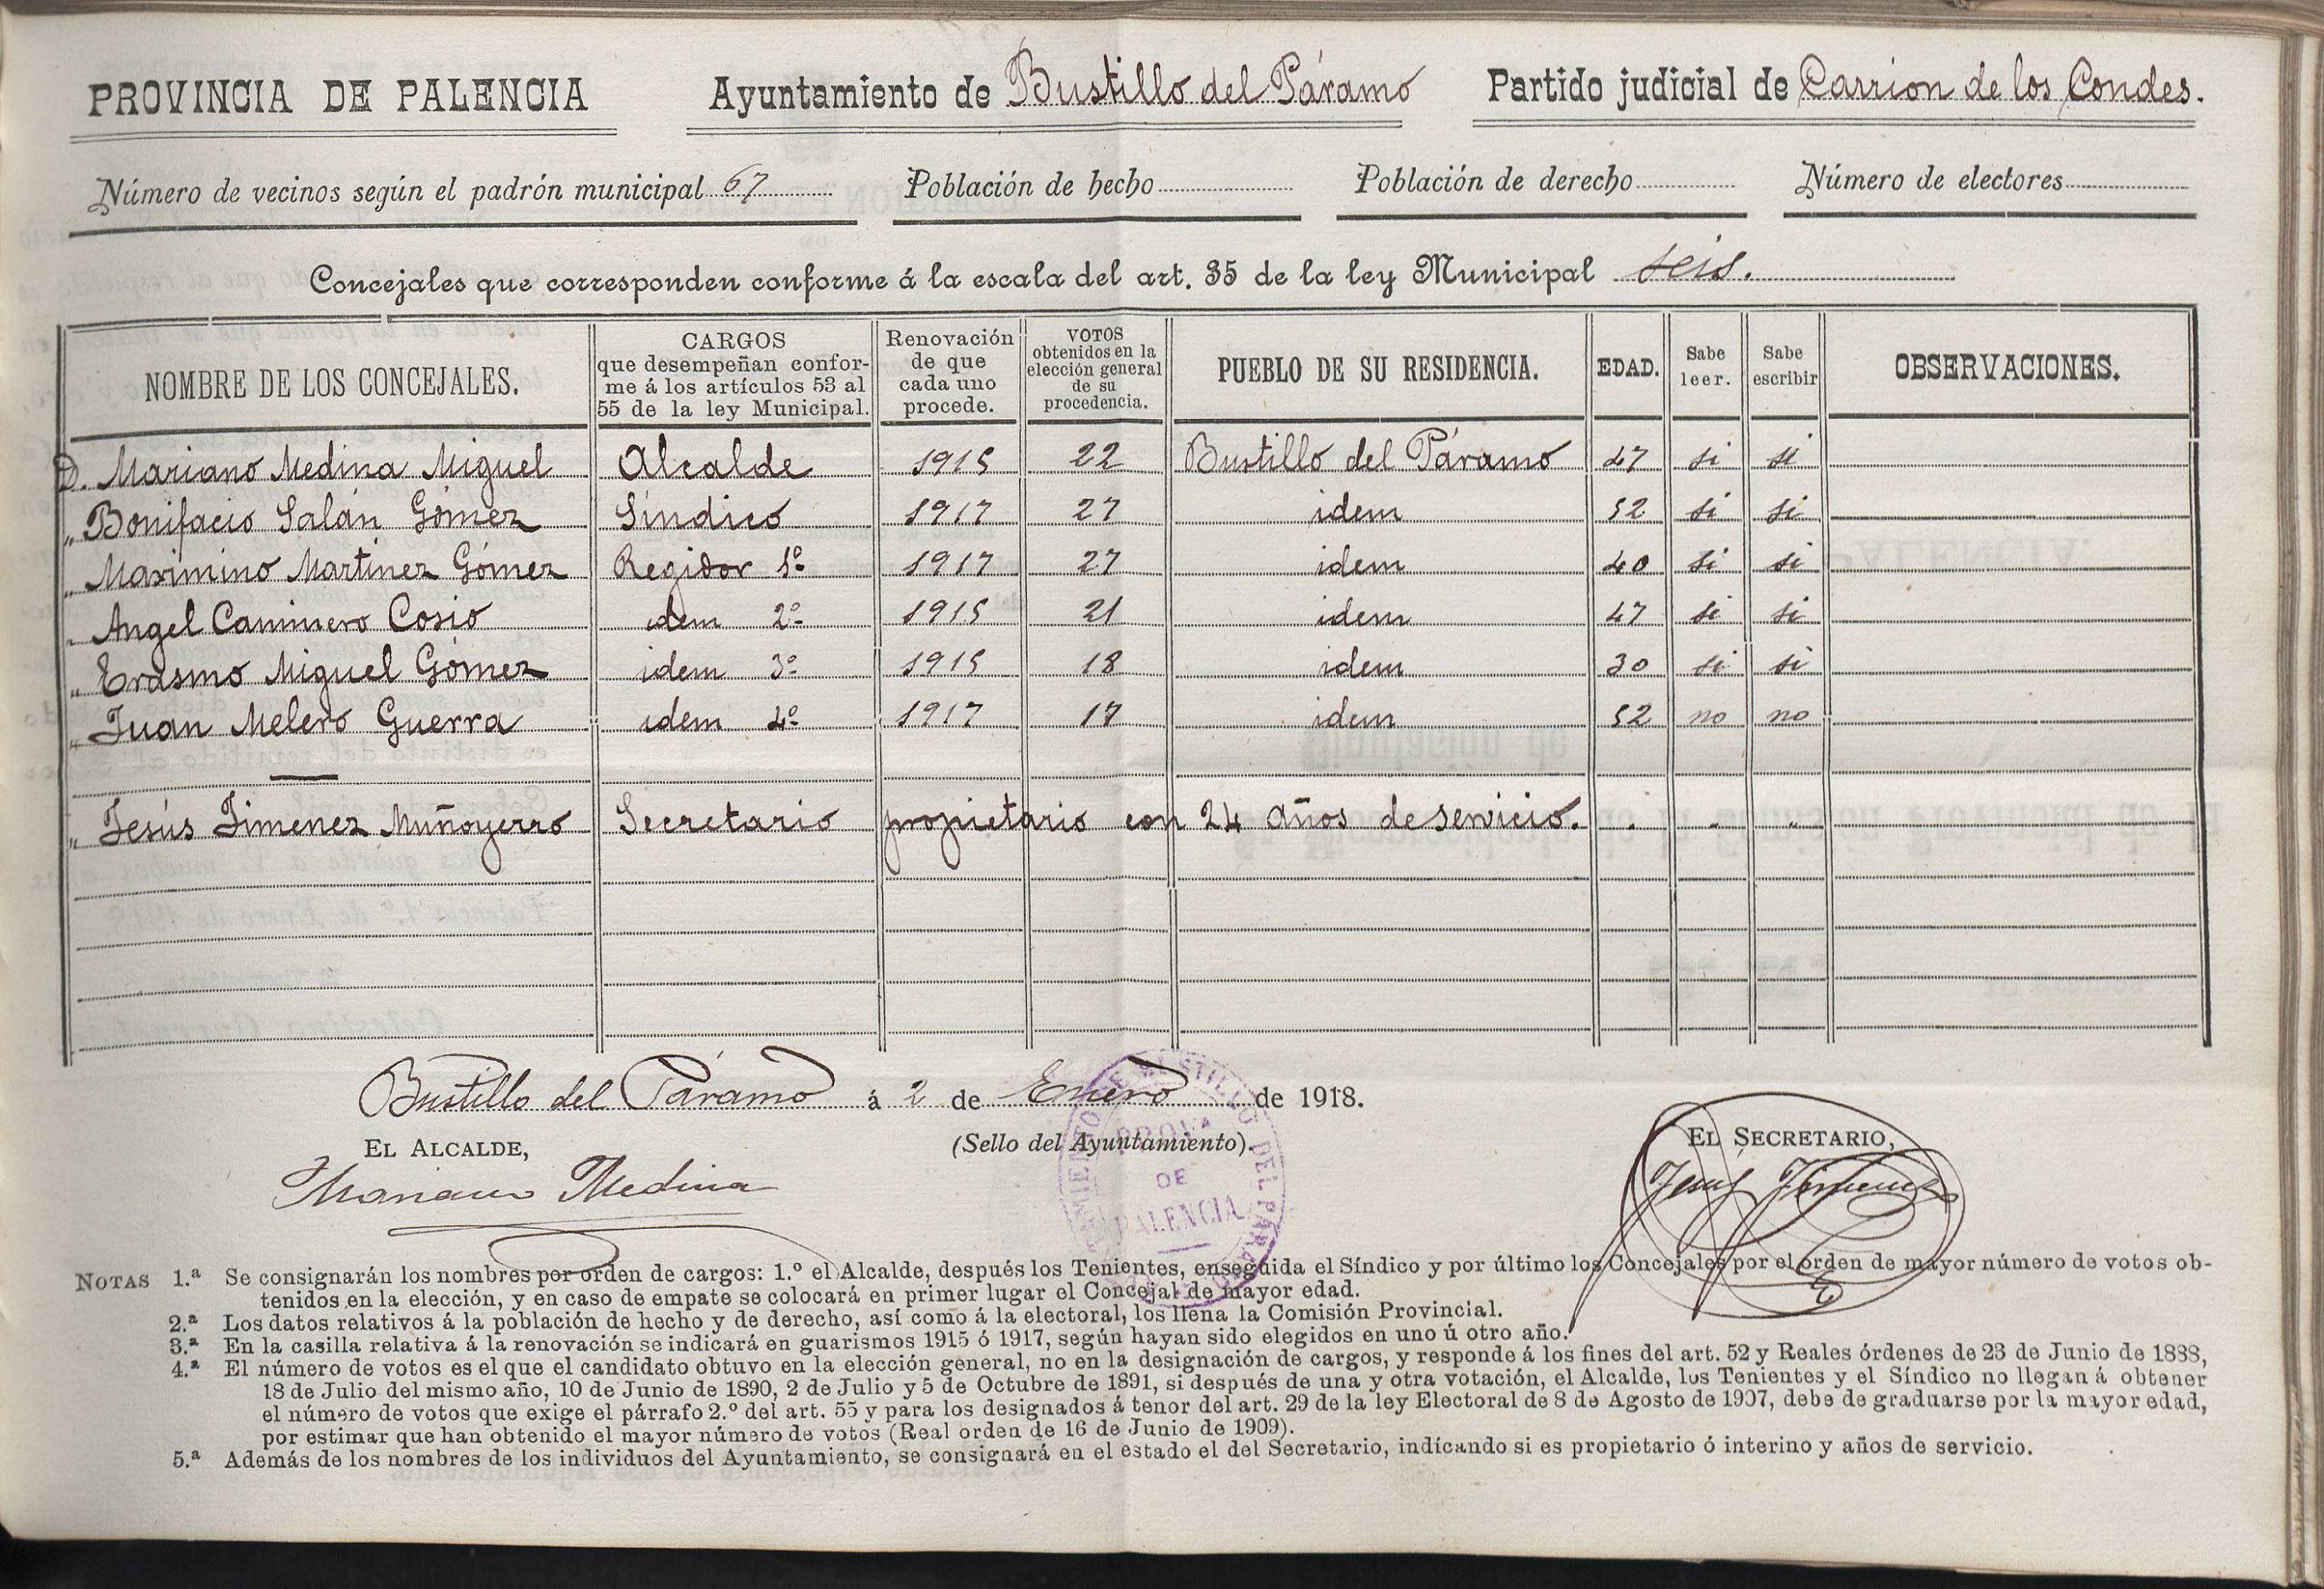 PROVINCIA DE PALENCIA Ayuntamiento de Bustillo del Páramo Partido judicial de Carrion de los Condes.
Número de vecinos según el padrón municipal 67 Población de hecho Población de derecho Número de electores
Concejales que corresponden conforme á la escala del art. 35 de la ley Municipal seis.
NOMBRE DE LOS CONCEJALES. CARGOS que desempeñan conforme á los artículos 53 al 55 de la ley Municipal. Renovación de que cada uno procede. VOTOS obtenidos en la elección general de su procedencia. PUEBLO DE SU RESIDENCIA. EDAD. Sabe leer. Sabe escribir OBSERVACIONES.
D. Mariano Medina Miguel Alcalde 1915 22 Bustillo del Páramo 47 si si
„ Bonifacio Salán Gómez Síndico 1917 27 idem 52 si si
„ Maximino Martinez Gómez Regidor 1º 1917 27 idem 40 si si
„ Angel Caminero Cosio idem 2º 1915 21 idem 47 si si
„ Erasmo Miguel Gómez idem 3º 1915 18 idem 30 si si
„ Juan Melero Guerra idem 4º 1917 17 idem 52 no no
„ Jesús Jimenez Muñoyerro Secretario propietario con 24 años de servicio.
Bustillo del Páramo á 2 de Enero de 1918.
EL ALCALDE, (Sello del Ayuntamiento). EL SECRETARIO,
Mariano Medina Jesus Jimenez
PROVª
DE
PALENCIA
NOTAS 1.ª Se consignarán los nombres por orden de cargos: 1.º el Alcalde, después los Tenientes, enseguida el Síndico y por último los Concejales por el orden de mayor número de votos ob-
tenidos en la elección, y en caso de empate se colocará en primer lugar el Concejal de mayor edad.
2.ª Los datos relativos á la población de hecho y de derecho, así como á la electoral, los llena la Comisión Provincial.
3.ª En la casilla relativa á la renovación se indicará en guarismos 1915 ó 1917, según hayan sido elegidos en uno ú otro año.
4.ª El número de votos es el que el candidato obtuvo en la elección general, no en la designación de cargos, y responde á los fines del art. 52 y Reales órdenes de 23 de Junio de 1888,
18 de Julio del mismo año, 10 de Junio de 1890, 2 de Julio y 5 de Octubre de 1891, si después de una y otra votación, el Alcalde, los Tenientes y el Síndico no llegan á obtener
el número de votos que exige el párrafo 2.º del art. 55 y para los designados á tenor del art. 29 de la ley Electoral de 8 de Agosto de 1907, debe de graduarse por la mayor edad,
por estimar que han obtenido el mayor número de votos (Real orden de 16 de Junio de 1909).
5.ª Además de los nombres de los individuos del Ayuntamiento, se consignará en el estado el del Secretario, indicando si es propietario ó interino y años de servicio.